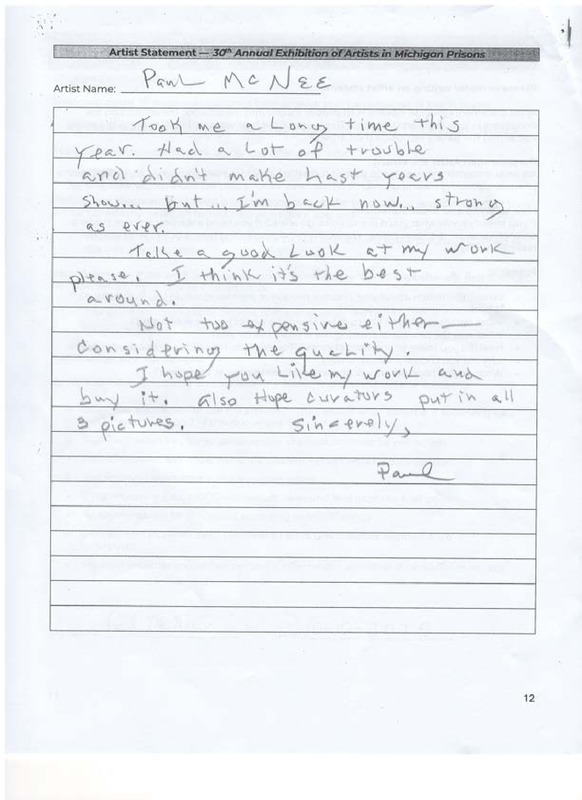 Artist Statement — 30th Annual Exhibition of Artists in Michigan Prisons
Artist Name: Paul McNee
Took me a Long time this
year. Had a Lot of trouble
and didn't make Last years
show... But... I'm back now... strong
as ever.
Take a good Look at my work
please. I think it's the best
around.
Not too expensive either—
considering the quality.
I hope you Like my work and
buy it. Also Hope curators put in all
3 pictures. Sincerely,
Paul
12